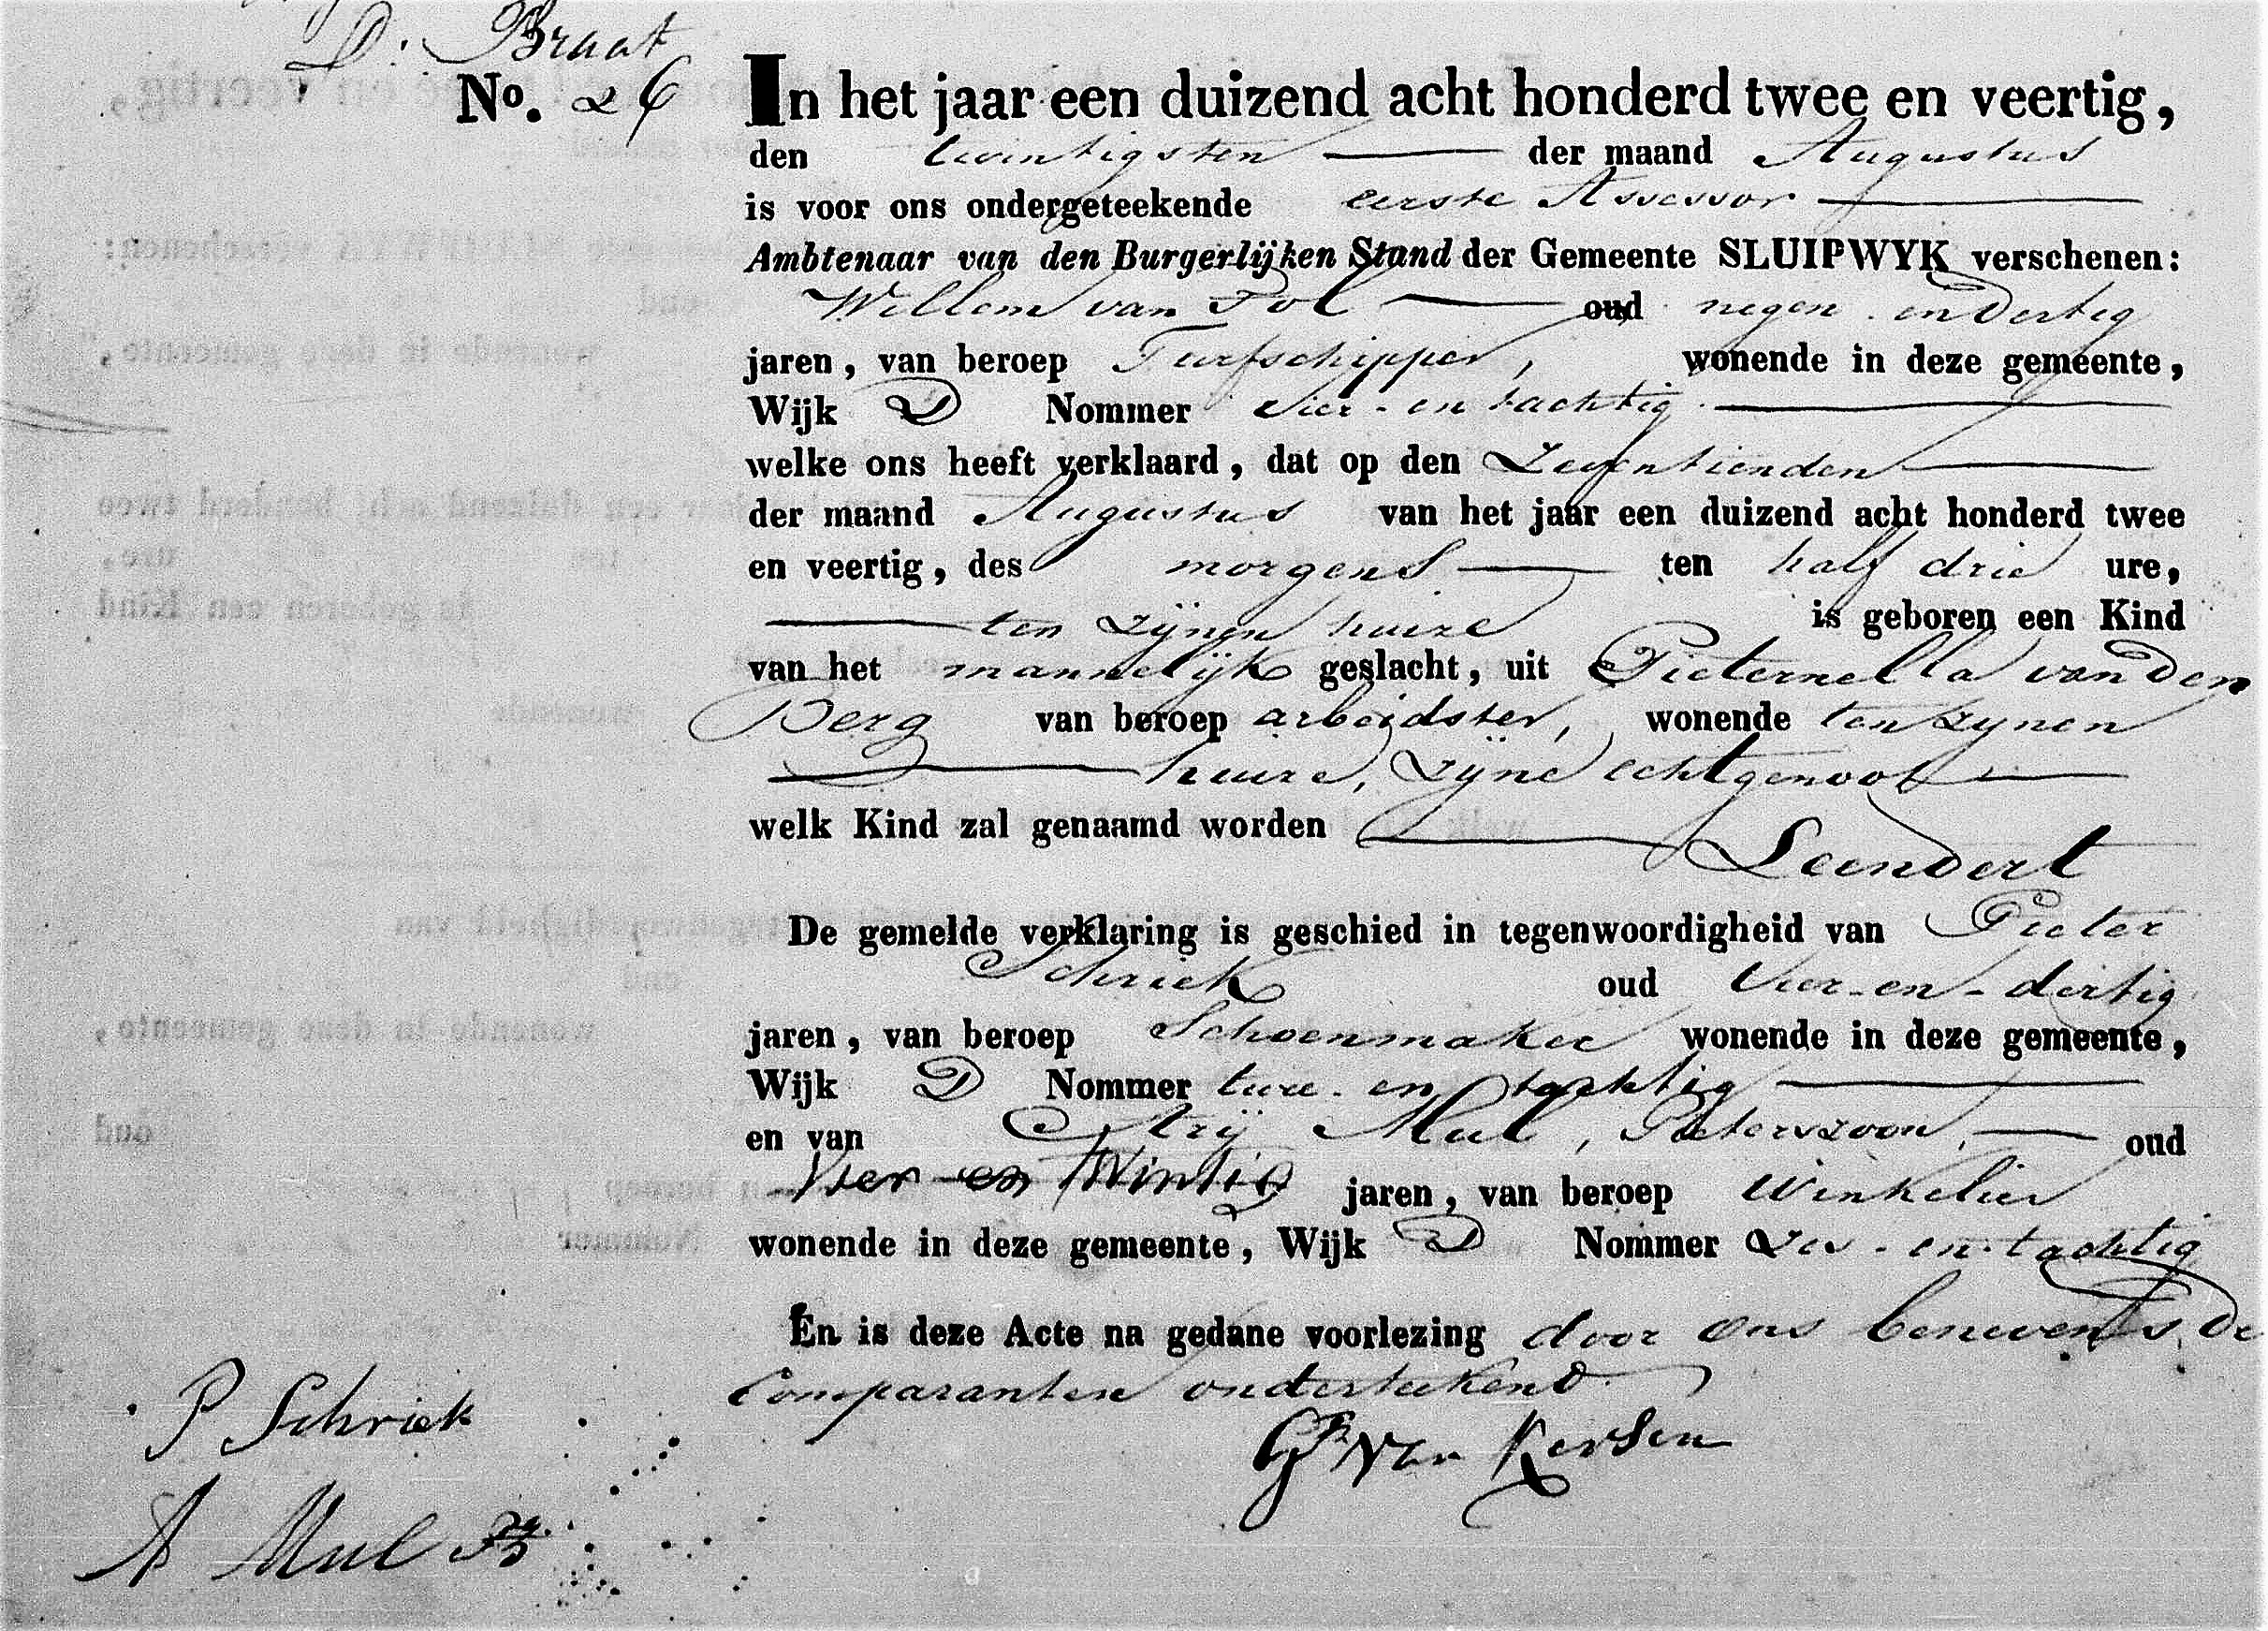 D. Braat
No. 26
In het jaar een duizend acht honderd twee en veertig,
den twintigsten der maand Augustus
is voor ons ondergeteekende eerste Assessor
Ambtenaar van den Burgerlijken Stand der Gemeente SLUIPWYK verschenen:
Willem van Tol oud negen en dertig
jaren, van beroep Turfschipper, wonende in deze gemeente,
Wijk D Nommer vier-en tachtig
welke ons heeft verklaard, dat op den Zeventienden
der maand Augustus van het jaar een duizend acht honderd twee
en veertig, des morgens ten half drie ure,
ten zijnen huize is geboren een Kind
van het mannelijk geslacht, uit Pieternella van den
Berg van beroep arbeidster, wonende ten zynen
huize, zijne echtgenoot
welk Kind zal genaamd worden Leendert
De gemelde verklaring is geschied in tegenwoordigheid van Pieter
Schriek oud vier-en-dertig
jaren, van beroep Schoenmaker wonende in deze gemeente,
Wijk D Nommer twee-en tachtig
en van Arij Mul, Pieterszoon, oud
Vier-en Twintig jaren, van beroep Winkelier
wonende in deze gemeente, Wijk D Nommer Zes-en-tachtig
En is deze Acte na gedane voorlezing door ons benevens de
Comparanten onderteekend.
P Schriek
van Kersen
A Mul Pz.